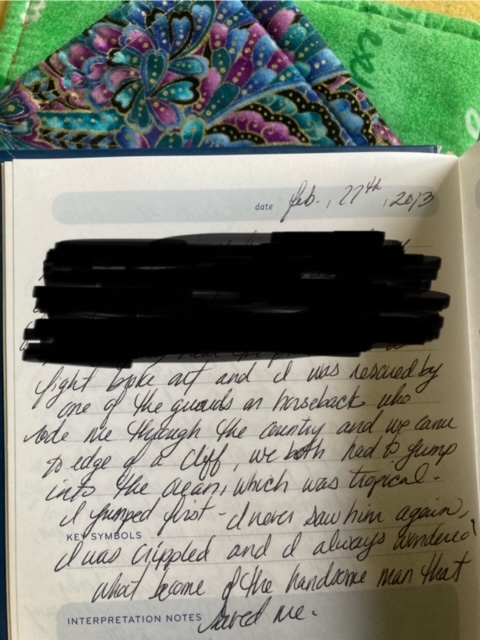 date Feb., 27th, 2013
fight broke out and I was rescued by
one of the guards on horseback who
rode me through the country and we came
to edge of a cliff, we both had to jump
into the ocean, which was tropical.
I jumped first - I never saw him again,
KEY SYMBOLS
I was crippled and I always wondered
what become of the handsome man that
INTERPRETATION NOTES
saved me.